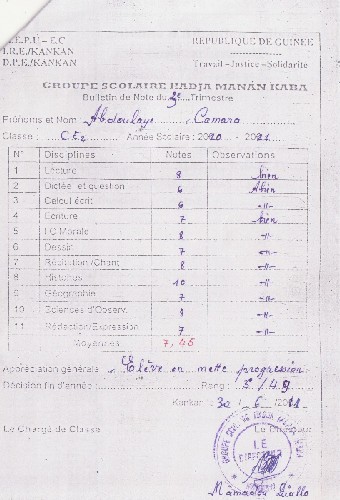 M.E.P.U - E.C REPUBLIQUE DE GUINEE
I.R.E./KANKAN
D.P.E./KANKAN Travail - Justice - Solidarite
GROUPE SCOLAIRE HADJA MANAN KABA
Bulletin de Note du 3e Trimestre
Prénoms et Nom : Abdoulaye Camara
Classe : Année Scolaire : 2020 - 2021
N° Disciplines Notes Observations
1 Lecture 8 bien
2 Dictée et question 6 Abien
3 Calcul écrit 6 -//-
4 Ecriture 7 bien
5 I.C Morale 8 -//-
6 Dessin 7 -//-
7 Récitation/Chant 8 -//-
8 Histoires 10 -//-
9 Géographie 7 -//-
10 Sciences d'Observ. 8 -//-
11 Rédaction/Expression 7 -//-
Moyennes: 7,45
Appréciation générale : Elève en nette progression
Décision fin d'année : Rang : 5 / 49
Kankan 30 / 6 /2011
Le Chargé de Classe Le Directeur
LE
DIRECTEUR
Mamadou Diallo